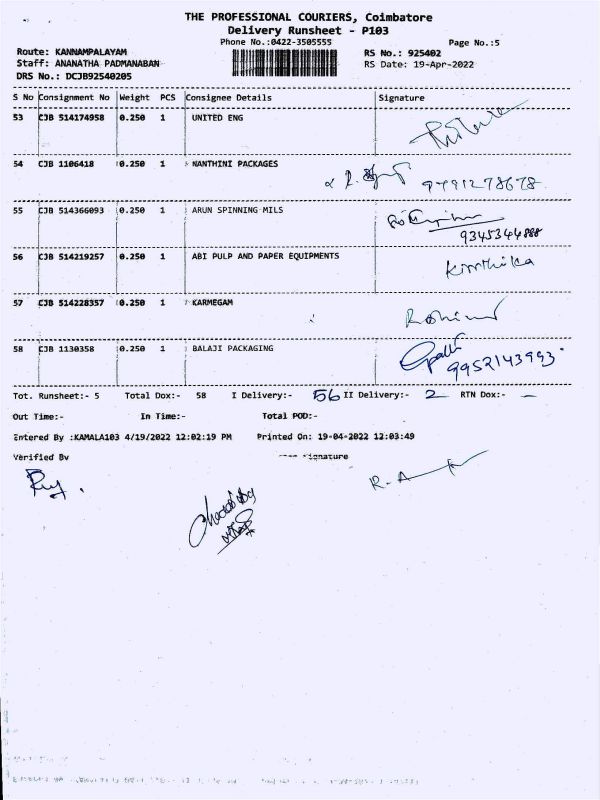 THE PROFESSIONAL COURIERS, Coimbatore
Delivery Runsheet - P103
Phone No.:0422-3505555
Page No.:5
Route: KANNAMPALAYAM
RS No.: 925402
Staff: ANANATHA PADMANABAN
RS Date: 19-Apr-2022
DRS No.: DCJB92540205
S No Consignment No Weight PCS Consignee Details Signature
53 CJB 514174958 0.250 1 UNITED ENG
54 CJB 1106418 0.250 1 NANTHINI PACKAGES
9791278678
55 CJB 514366093 0.250 1 ARUN SPINNING MILS
9345344888
56 CJB 514219257 0.250 1 ABI PULP AND PAPER EQUIPMENTS
Kirthika
57 CJB 514228357 0.250 1 KARMEGAM
58 CJB 1130358 0.250 1 BALAJI PACKAGING
9952143993
Tot. Runsheet:- 5 Total Dox:- 58 I Delivery:- 56 II Delivery:- 2 RTN Dox:- -
Out Time:- In Time:- Total POD:-
Entered By :KAMALA103 4/19/2022 12:02:19 PM Printed On: 19-04-2022 12:03:49
Verified By Signature
R.A